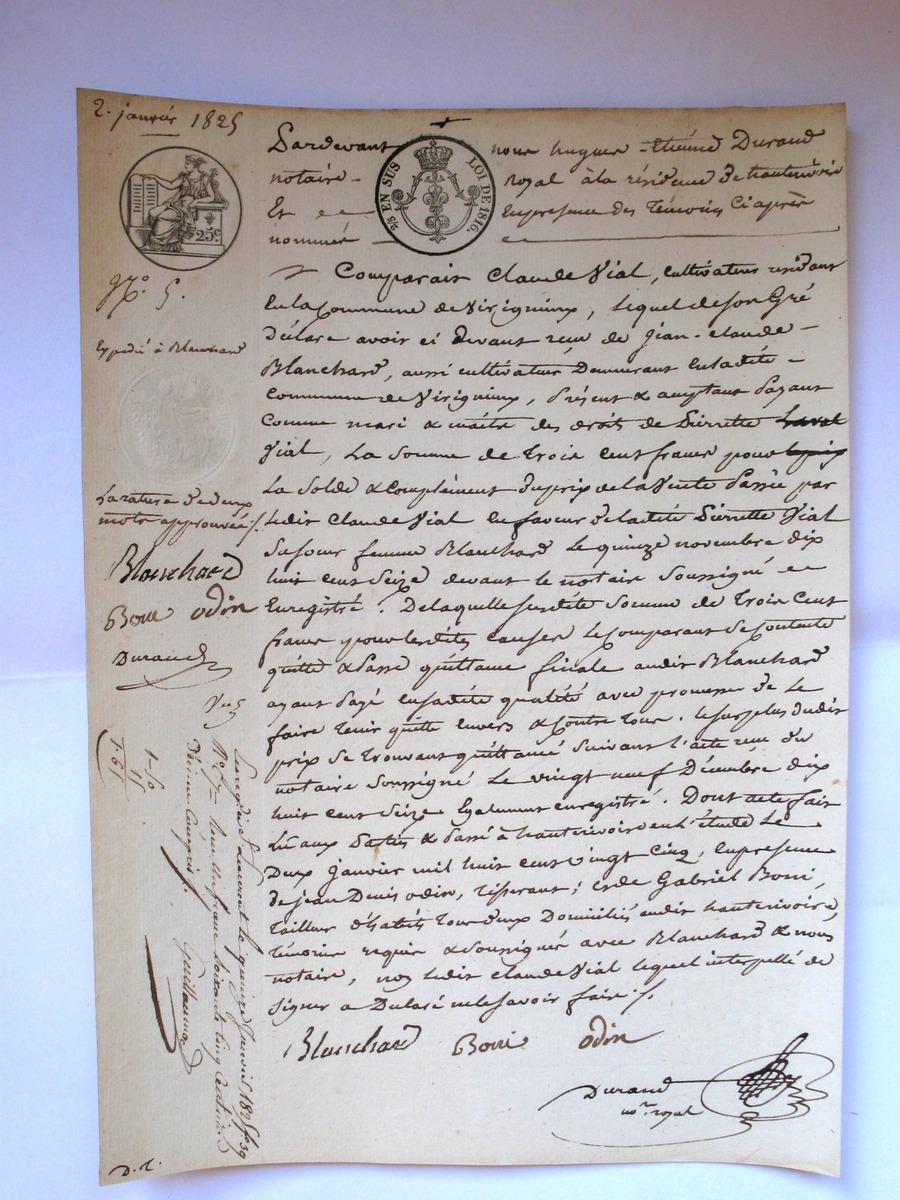 2. janvier 1825
25c
2/5 EN SUS LOI DE 1816.
No. 5.
Expedié à Blanchard
La rature de deux
mots approuvée /.
Blanchard
Boni odin
Durand
Pardevant nous hugues - Etienne Durand
notaire - royal à la résidence de hauterivoire
Et en presence des témoins Ci après
nommés
Comparait Claude Vial, cultivateur residant
En la Commune de Virigneux, lequel de son Gré
Déclare avoir ci devant reçu de Jean-claude
Blanchard, aussi cultivateur Demeurant En ladite
Commune de Virigneux, présent & acceptant payant
Comme mari & maître des droits de Pierrette
Vial, La Somme de Trois Cent francs pour
La Solde & Complément du prix de la Vente Passée par
ledit Claude Vial En faveur de ladite Pierrette Vial
Sa soeur femme Blanchard Le quinze novembre dix
huit cent Seize devant le notaire Soussigné
Enregistré. De laquelle susdite Somme de Trois Cent
francs pour lesdites causes le comparant Se Contente
quitte & Passe quittance finale audit Blanchard
ayant payé en sadite qualité avec promesse de le
faire tenir quitte Envers & Contre Tous. le surplus dudit
prix Se Trouvant quittancé Suivant l'acte reçu du
notaire Soussigné Le vingt neuf Décembre dix
huit cent Seize Egalement enregistré. Dont acte fait
Lu aux parties & Passé à hauterivoire en l'étude Le
Deux Janvier mil huit cent vingt Cinq, En presence
de Jean Denis odin, Tisserant; et de Gabriel Boni,
Tailleur d'habits Tous deux Domiciliés audit hauterivoire,
Témoins requis & Soussignés avec Blanchard & nous
notaire, non ledit Claude Vial lequel interpellé de
Signer a Déclaré ne le savoir faire /.
Blanchard Boni odin
Durand
nore royal
1-50
15
1.65
Enregistré à St Laurent le quinze Janvier 1825
Reçu un franc soixante cinq centimes
Décime Compris /.
D. t.